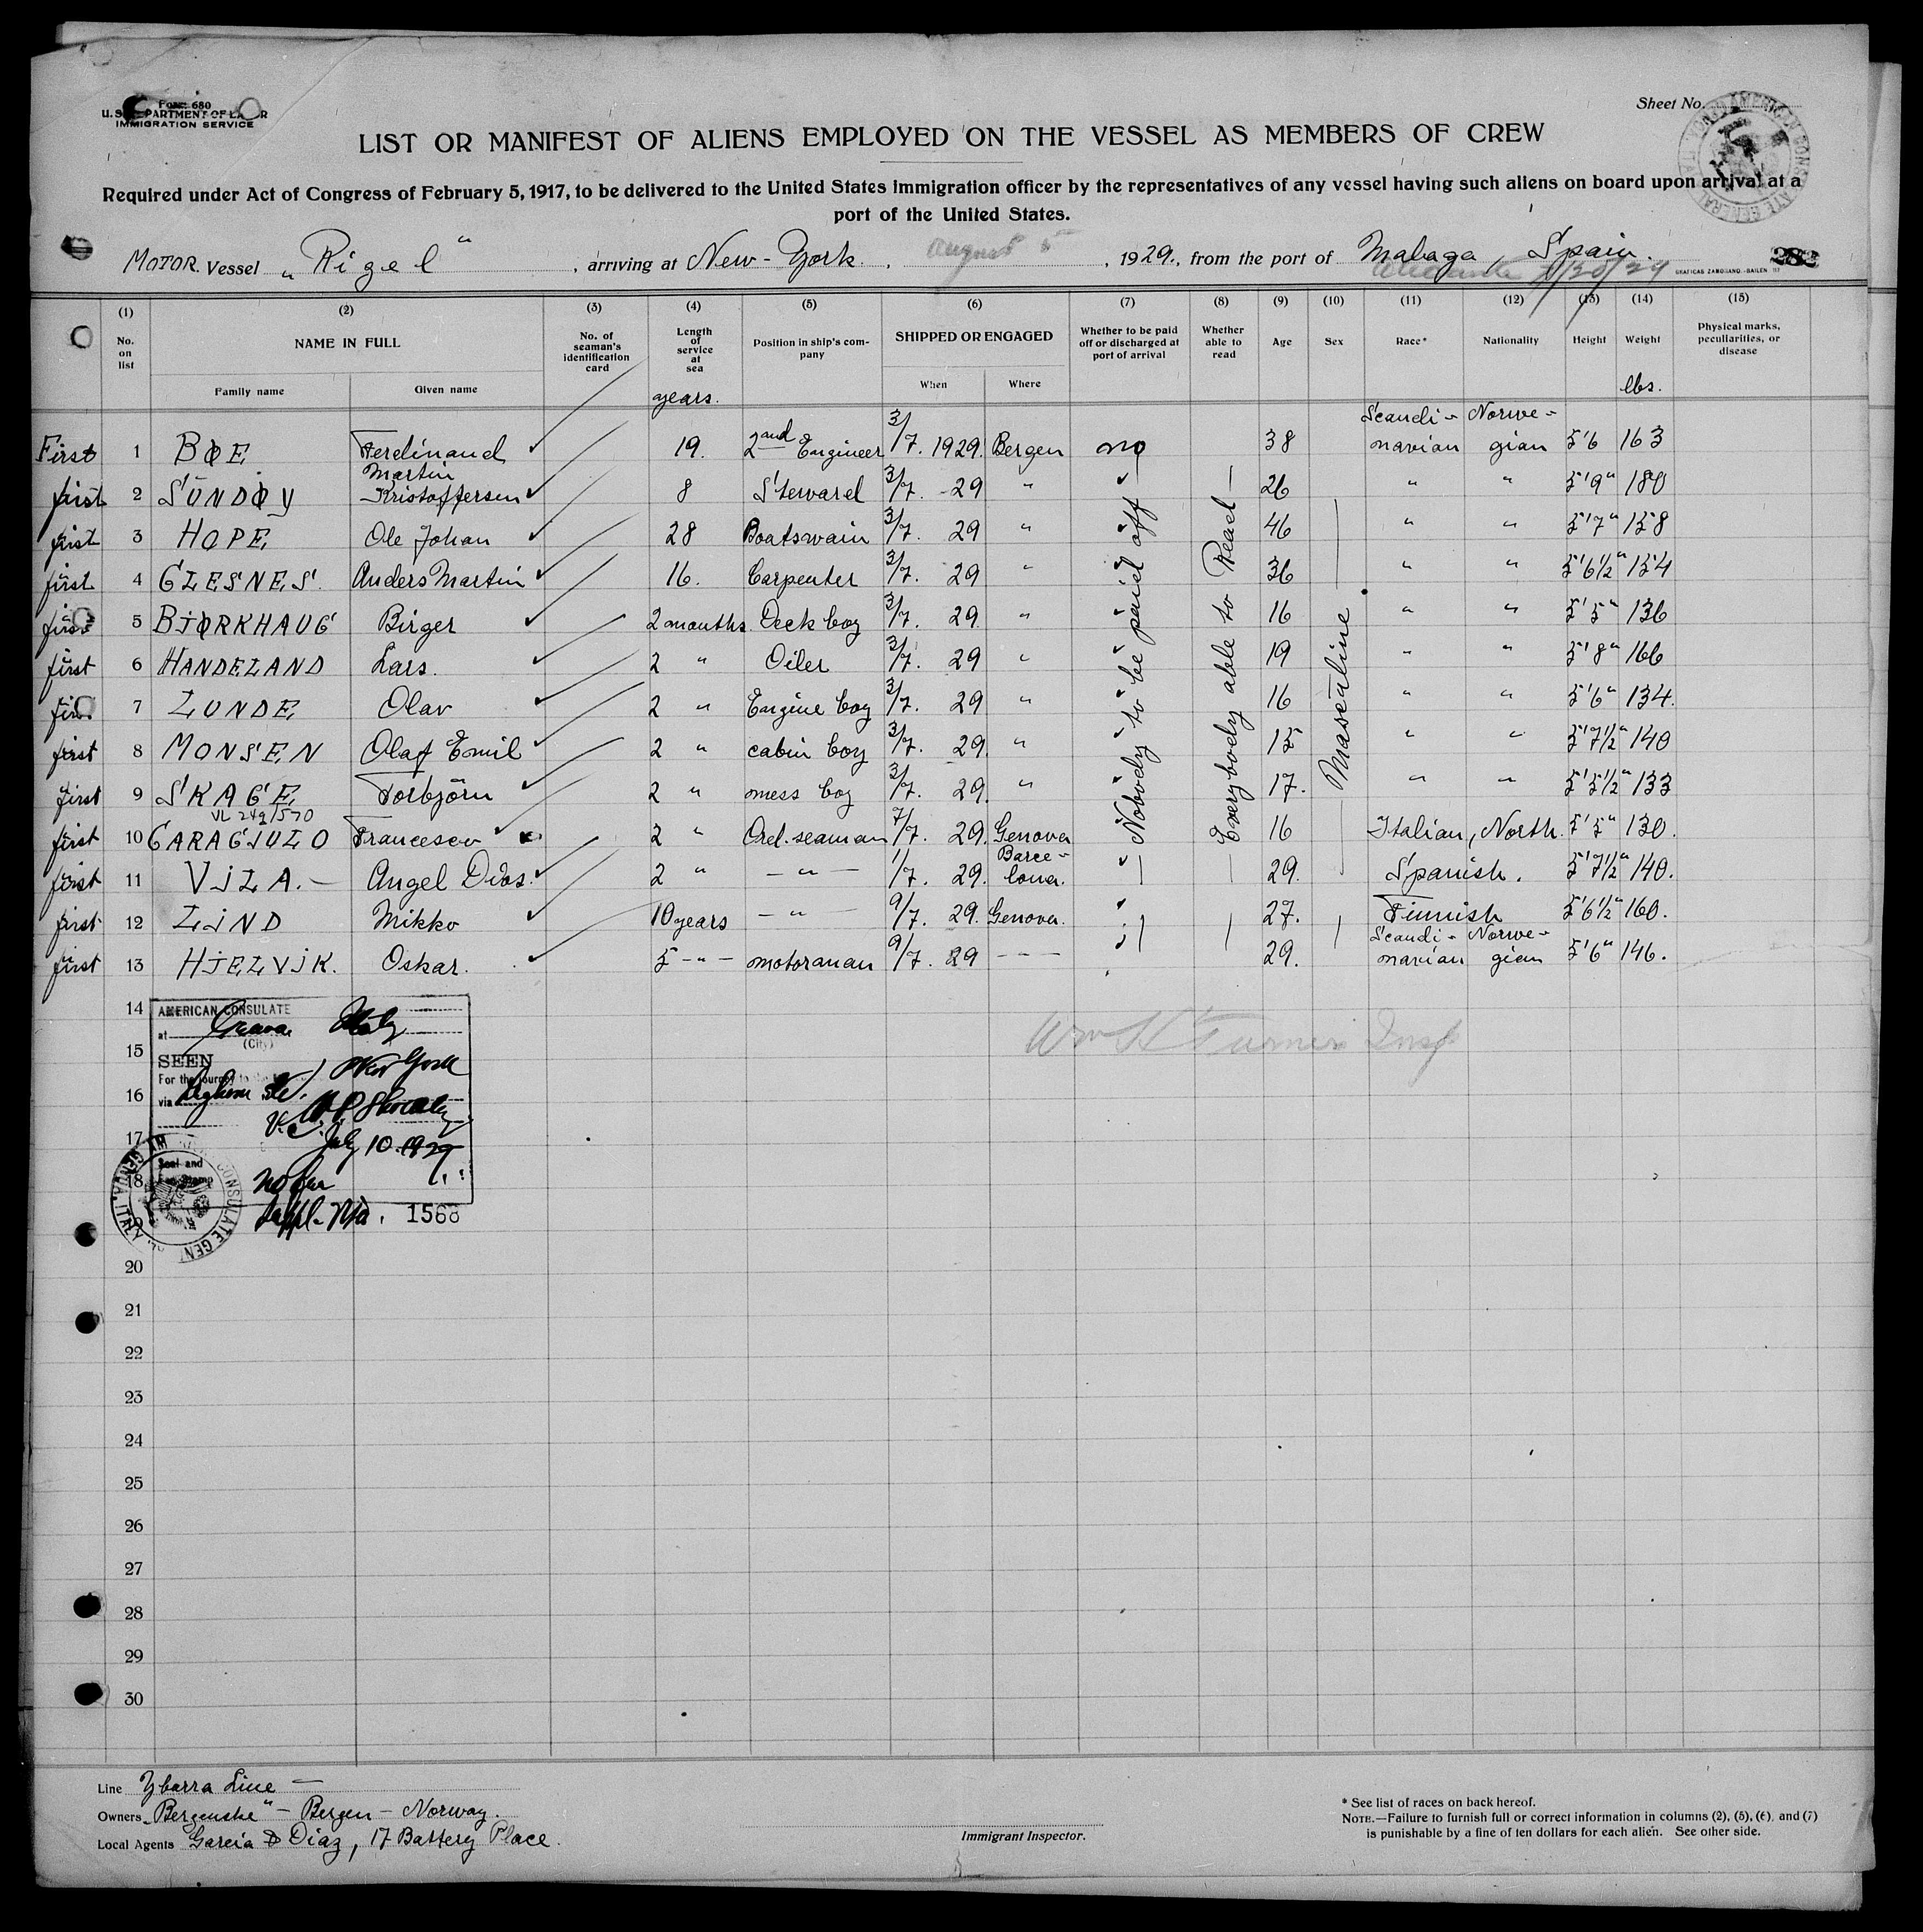 Form 680
U.S. DEPARTMENT OF LABOR
IMMIGRATION SERVICE
Sheet No.
LIST OR MANIFEST OF ALIENS EMPLOYED ON THE VESSEL AS MEMBERS OF CREW
Required under Act of Congress of February 5, 1917, to be delivered to the United States immigration officer by the representatives of any vessel having such aliens on board upon arrival at a
port of the United States.
MOTOR Vessel „Rigel“, arriving at New-York, August 5, 1929, from the port of Malaga, Spain.
282
(1) (2) (3) (4) (5) (6) (7) (8) (9) (10) (11) (12) (13) (14) (15)
No. on list NAME IN FULL Family name Given name No. of seaman's identification card Length of service at sea Position in ship's company SHIPPED OR ENGAGED When Where Whether to be paid off or discharged at port of arrival Whether able to read Age Sex Race* Nationality Height Weight Physical marks, peculiarities, or disease
years. lbs.
First 1 BØE Ferdinand 19. 2nd Engineer 3/7. 1929. Bergen no 38 Scandi-navian Norwe-gian 5'6 163
first 2 SUNDØY Martin Kristoffersen 8 Steward 3/7. -29 " " 26 " " 5'9" 180
first 3 HOPE Ole Johan 28 Boatswain 3/7. 29 " " 46 " " 5'7" 158
first 4 GLESNES Anders Martin 16. Carpenter 3/7. 29 " " 36 " " 5'6½" 154
first 5 BJØRKHAUG Birger 2 months. Deck boy 3/7. 29 " " 16 " " 5'5" 136
first 6 HANDELAND Lars. 2 " Oiler 3/7. 29 " " 19 " " 5'8" 166
first 7 LUNDE Olav 2 " Engine boy 3/7. 29 " " 16 " " 5'6" 134.
first 8 MONSEN Olaf Emil 2 " cabin boy 3/7. 29. " " 15 " " 5'7½" 140
first 9 SKAGE Torbjörn 2 " mess boy 3/7. 29. " " 17. " " 5'5½" 133
VL 249/570
first 10 GARAGJULO Francesco 2 " Ord. seaman 7/7. 29. Genova " 16 Italian, North. 5'5" 130.
first 11 VJLA.- Angel Dios. 2 " -"- 1/7. 29. Barce-lona. " 29. Spanish. 5'7½" 140.
first 12 LJND Mikko 10 years -"- 9/7. 29. Genova. " 27. Finnish 5'6½" 160.
first 13 HJELVJK. Oskar. 5 -"- motorman 9/7. 29 --- " 29. Scandi-navian Norwe-gian 5'6" 146.
Nobody to be paid off
Everybody able to Read
Masculine
14
15
16
17
18
19
20
21
22
23
24
25
26
27
28
29
30
AMERICAN CONSULATE
at Genoa Italy
(City)
SEEN
For the journey to the New York
via Leghorn
July 10. 1929
Seal and
Fee Stamp
No fee
1568
Wm H Turner Insp
Line Ybarra Line —
Owners „Bergenske" - Bergen - Norway.
Local Agents Garcia & Diaz, 17 Battery Place.
Immigrant Inspector.
* See list of races on back hereof.
NOTE.—Failure to furnish full or correct information in columns (2), (5), (6), and (7)
is punishable by a fine of ten dollars for each alien. See other side.